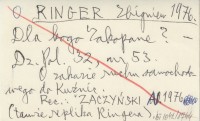 O RINGER Zbigniew 1976.
Dla kogo Zakopane? –
Dz. Pol. 32, nr 53.
O zakazie ruchu samochodo-
wego do Kuźnic.
Rec.: ZACZYŃSKI AJ 1976
(Tamże replika Ringera).